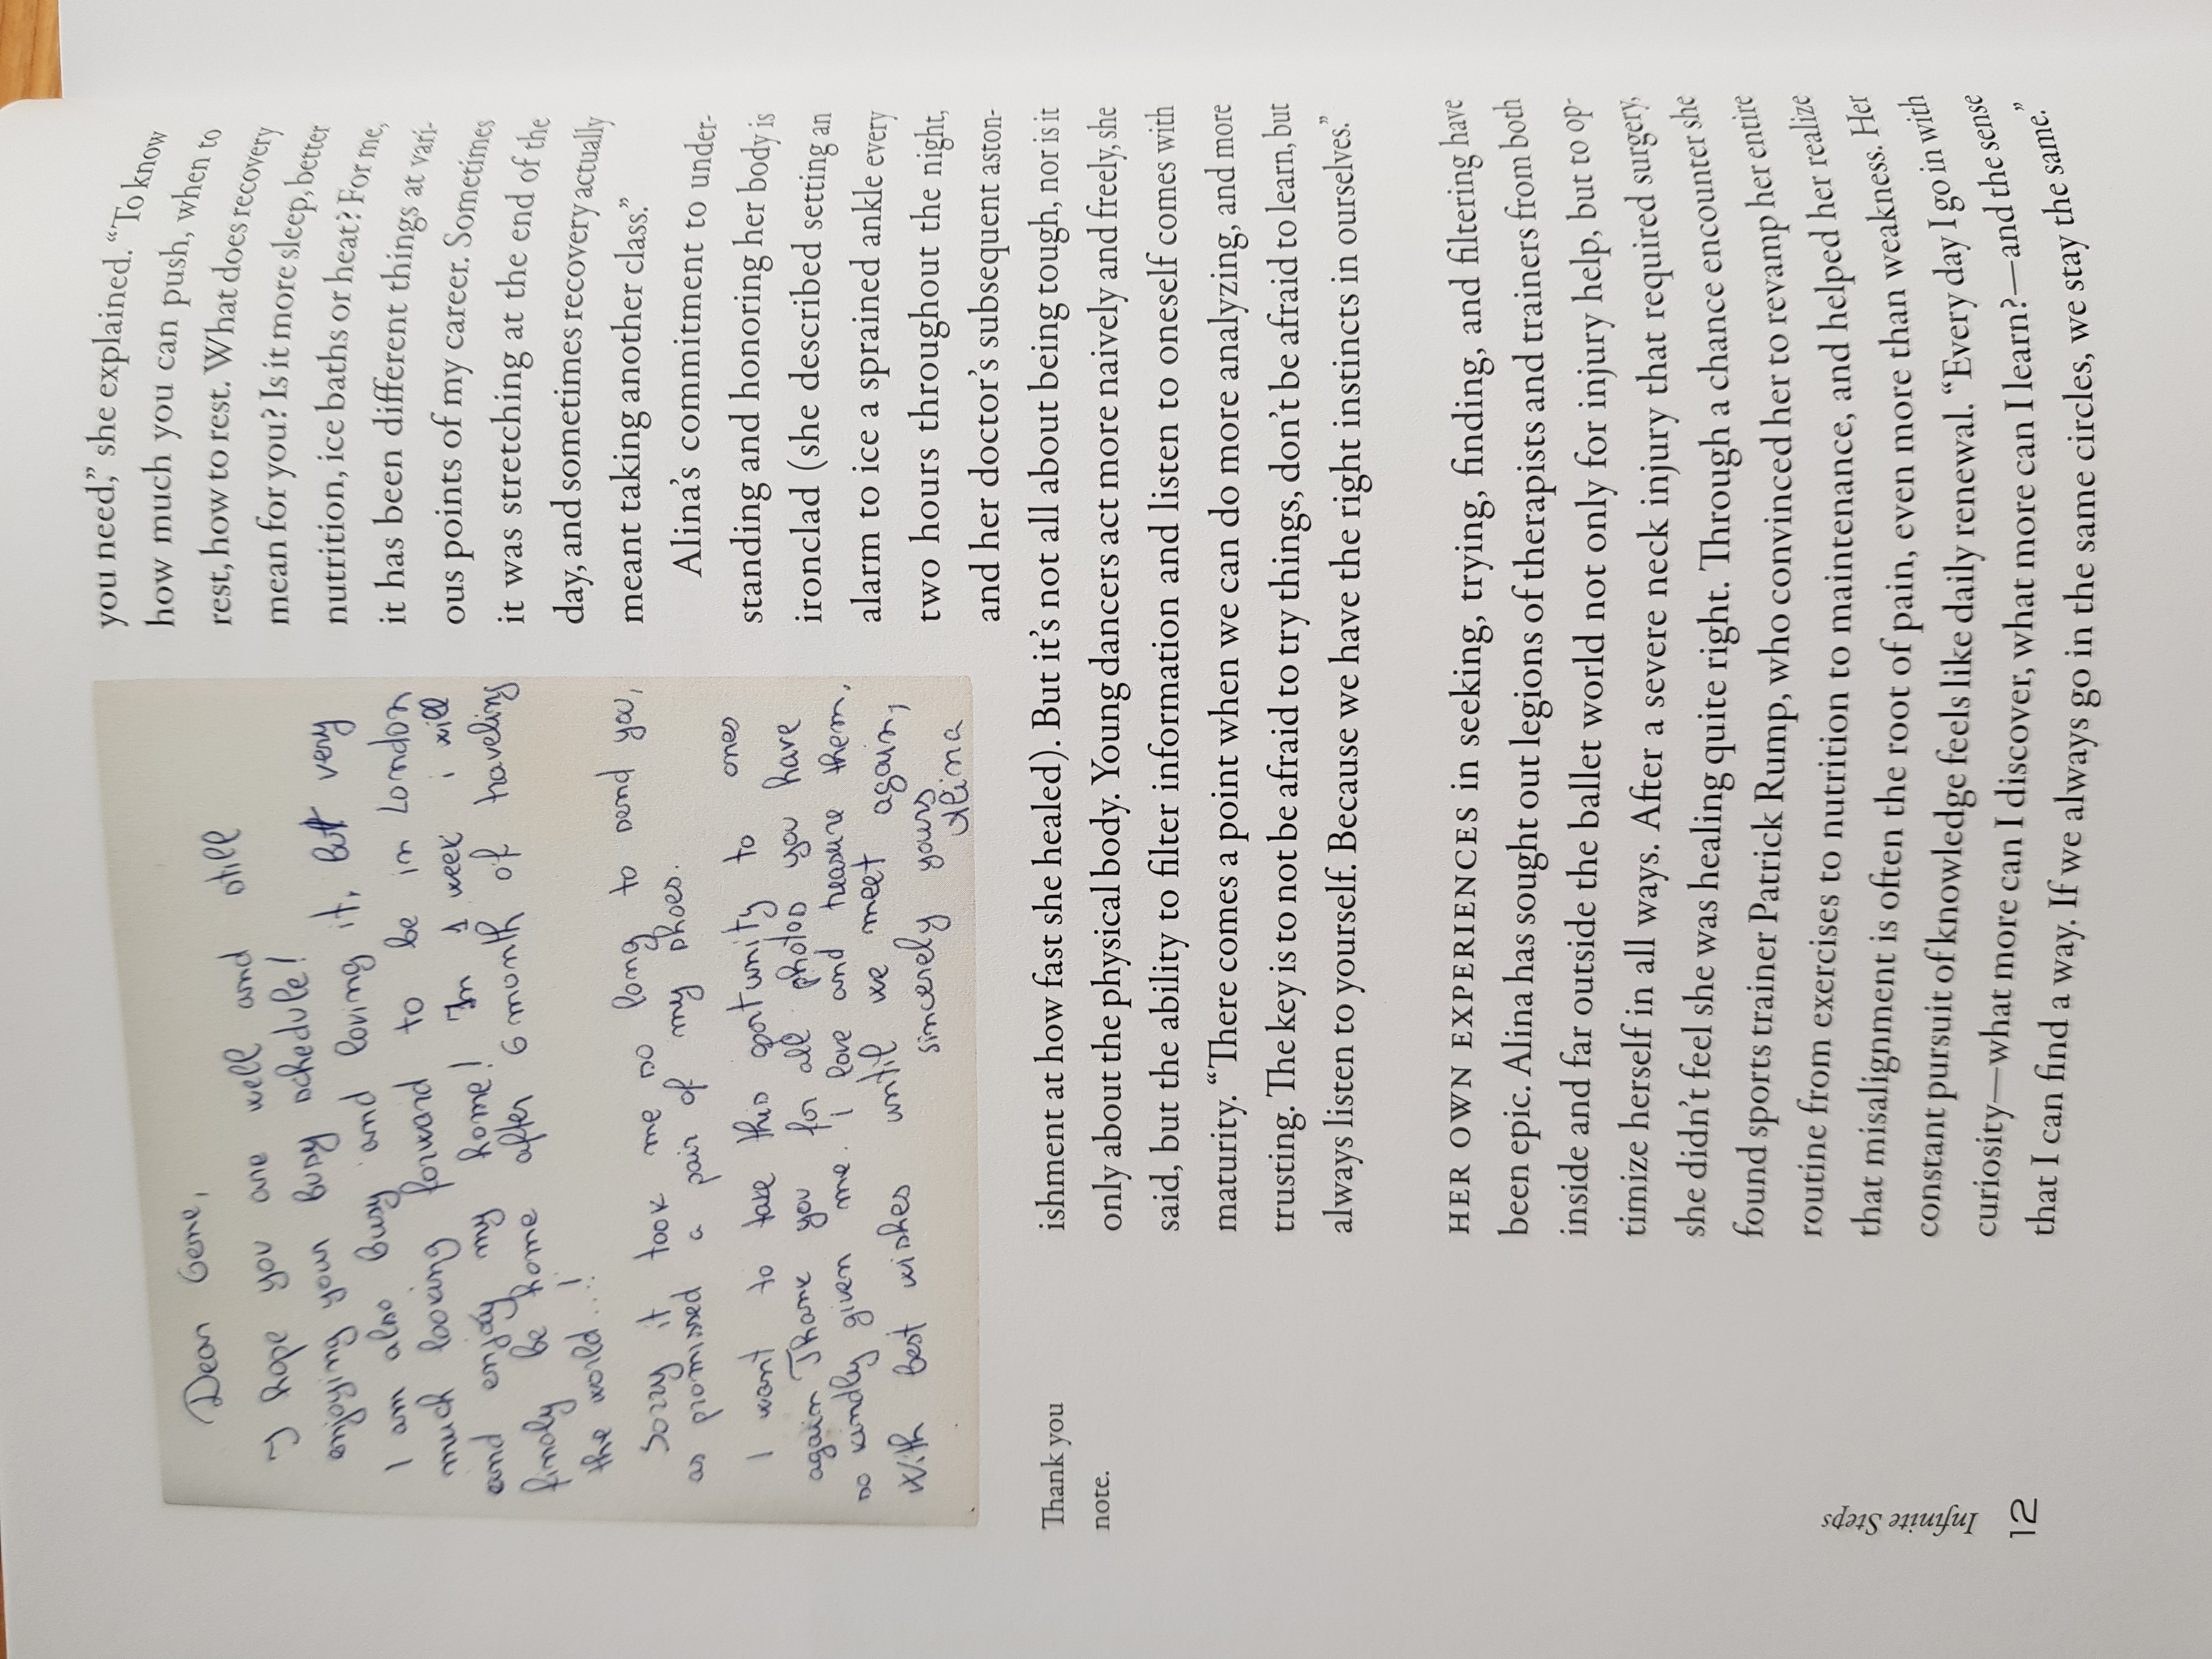 Dear Gene,
I hope you are well and still
enjoying your busy schedule!
I am also busy and loving it, but very
much looking forward to be in London
and enjoy my home! In 1 week i will
finaly be home after 6 month of traveling
the world...!
Sorry it took me so long to send you,
as promissed a pair of my shoes.
I want to take this oportunity to ones
again Thank you for all photos you have
so kindly given me. I love and treasure them.
With best wishes until we meet again,
sincerely yours
Alina
Thank you
note.
you need,” she explained. “To know
how much you can push, when to
rest, how to rest. What does recovery
mean for you? Is it more sleep, better
nutrition, ice baths or heat? For me,
it has been different things at vari-
ous points of my career. Sometimes
it was stretching at the end of the
day, and sometimes recovery actually
meant taking another class.”
Alina’s commitment to under-
standing and honoring her body is
ironclad (she described setting an
alarm to ice a sprained ankle every
two hours throughout the night,
and her doctor’s subsequent aston-
ishment at how fast she healed). But it’s not all about being tough, nor is it
only about the physical body. Young dancers act more naively and freely, she
said, but the ability to filter information and listen to oneself comes with
maturity. “There comes a point when we can do more analyzing, and more
trusting. The key is to not be afraid to try things, don’t be afraid to learn, but
always listen to yourself. Because we have the right instincts in ourselves.”
HER OWN EXPERIENCES in seeking, trying, finding, and filtering have
been epic. Alina has sought out legions of therapists and trainers from both
inside and far outside the ballet world not only for injury help, but to op-
timize herself in all ways. After a severe neck injury that required surgery,
she didn’t feel she was healing quite right. Through a chance encounter she
found sports trainer Patrick Rump, who convinced her to revamp her entire
routine from exercises to nutrition to maintenance, and helped her realize
that misalignment is often the root of pain, even more than weakness. Her
constant pursuit of knowledge feels like daily renewal. “Every day I go in with
curiosity—what more can I discover, what more can I learn?—and the sense
that I can find a way. If we always go in the same circles, we stay the same.”
Infinite Steps
12